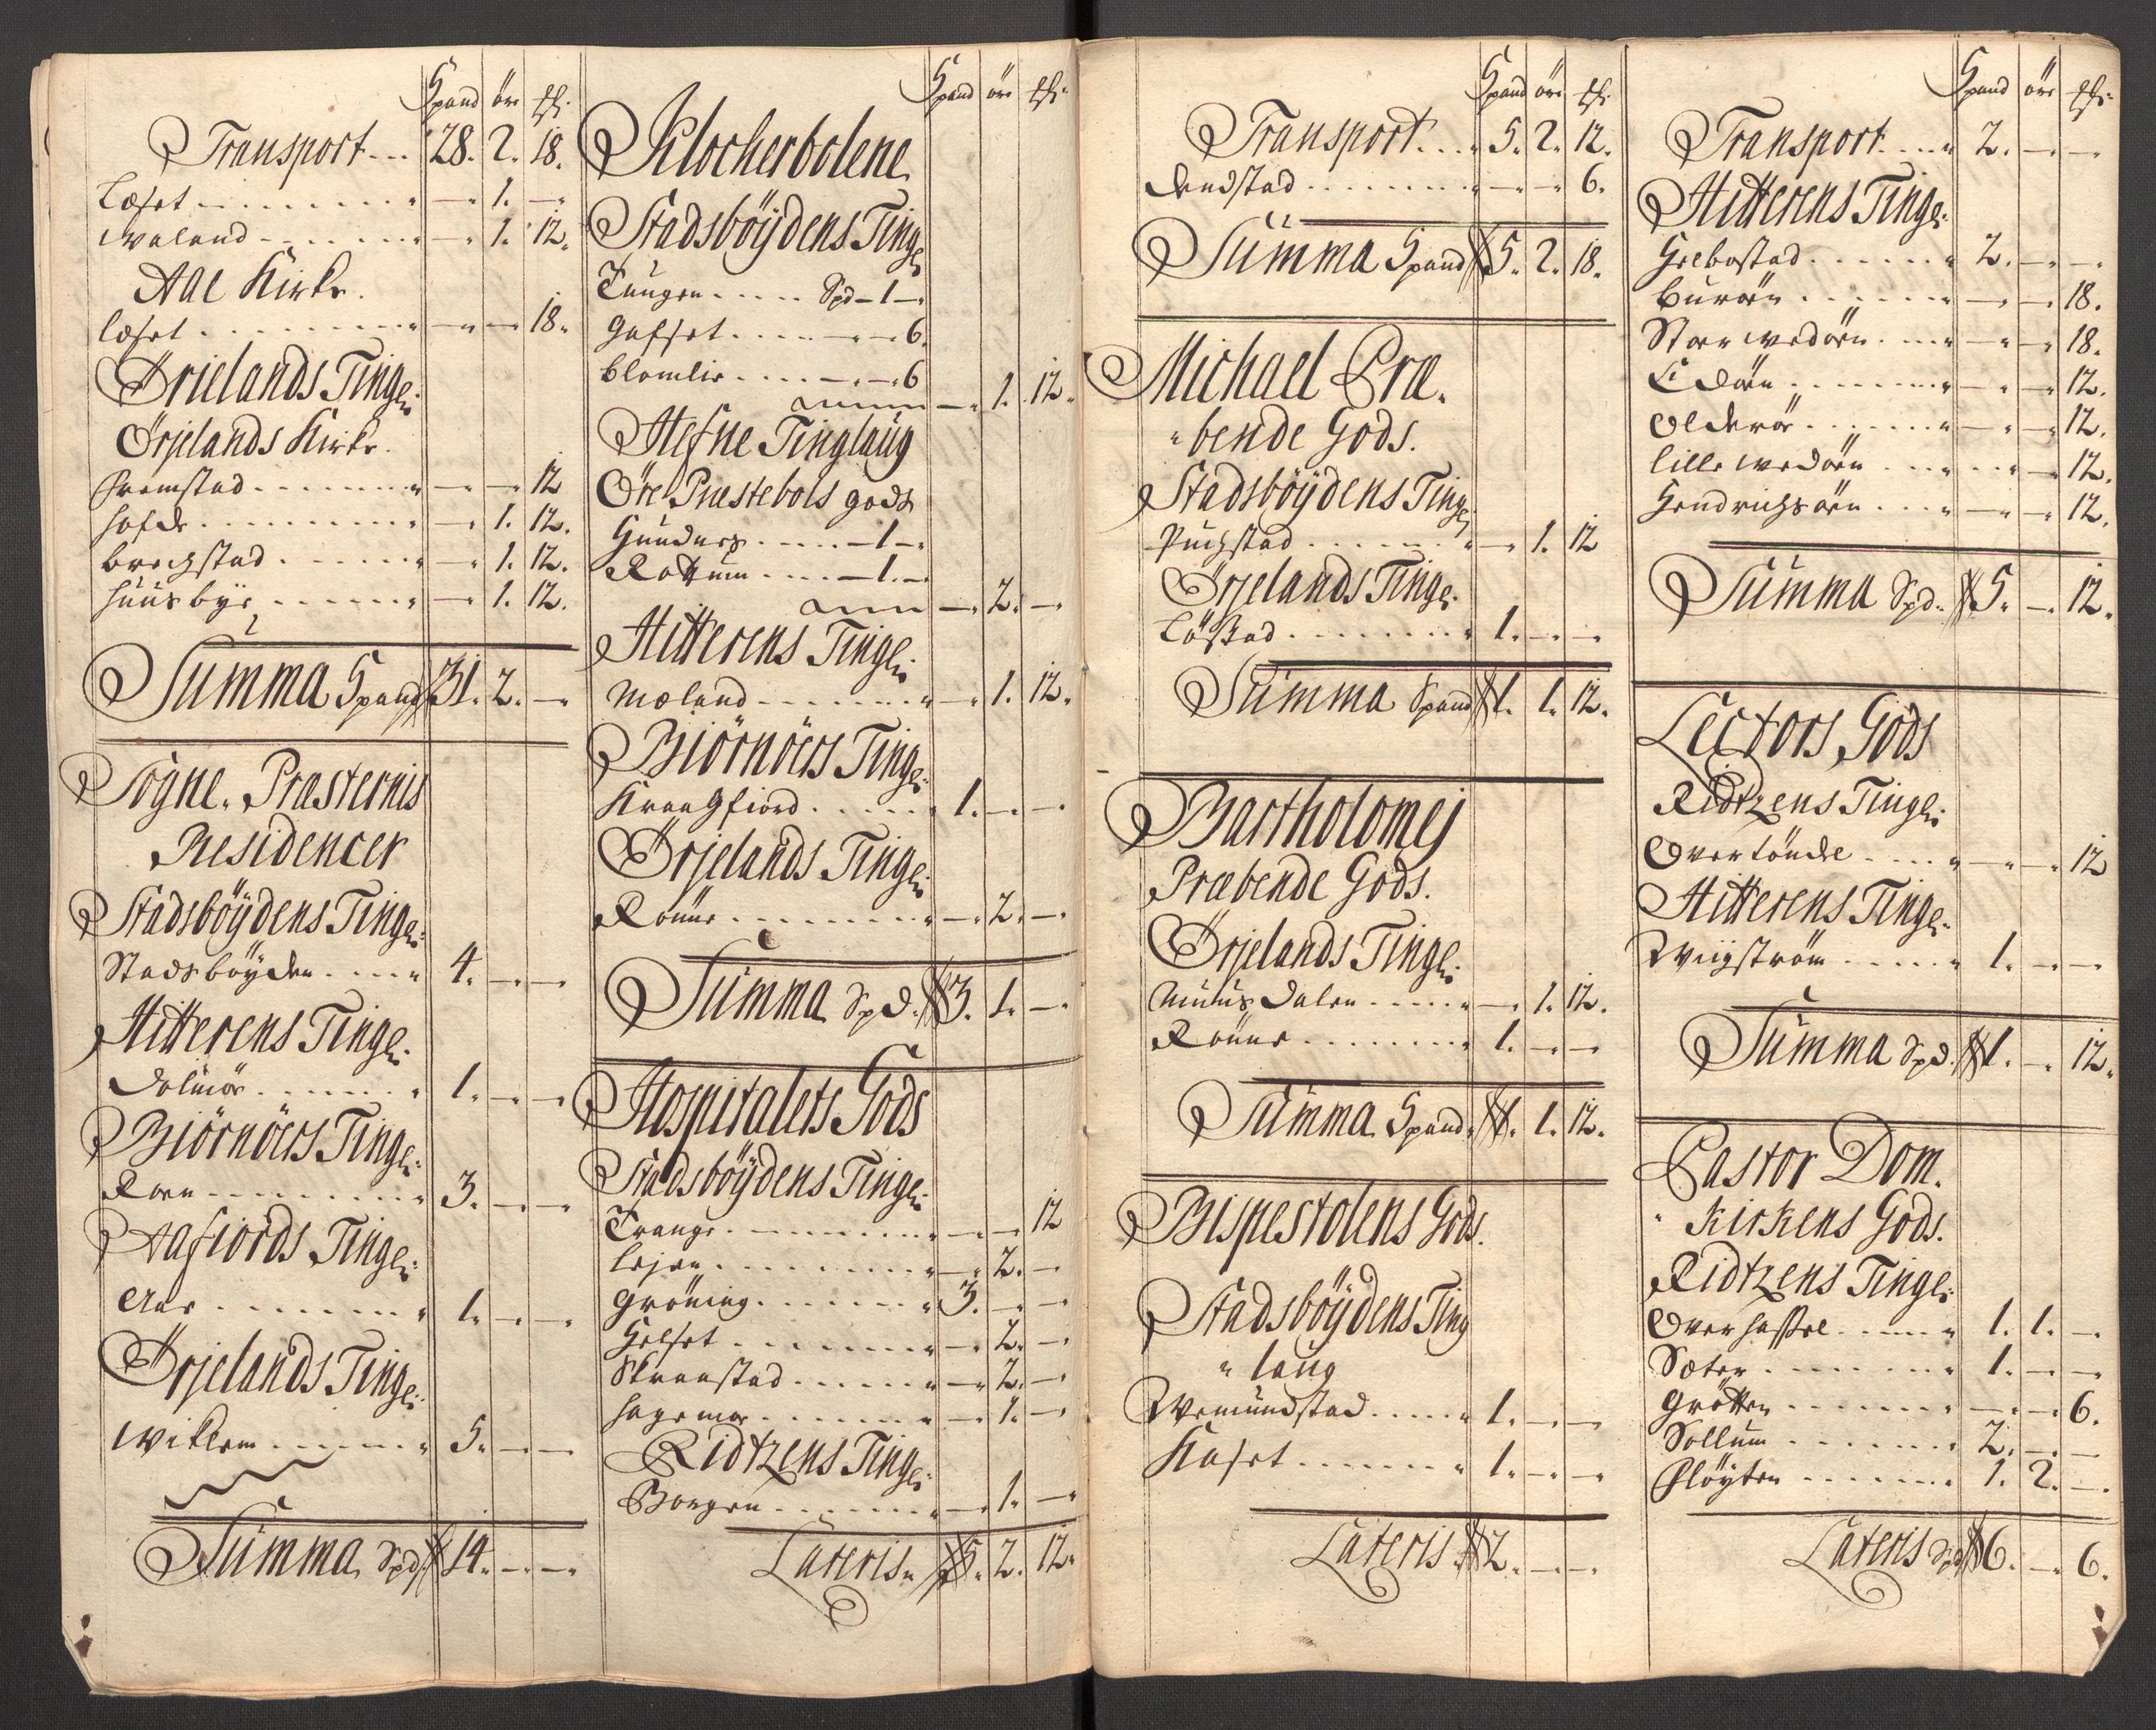 Spand öre
Transport 28. 2. 18.
Læset — 1. —
Waland — 1. 12.
Aae Kirke.
læset — — 18.
Ørjelands Tingl:
Ørjelands Kirke.
Fremstad — — 12
hofde — 1. 12.
Bregstad — 1. 12.
huusbye — 1. 12.
Summa Spand 31. 2. —
Sogne Præsternis
Residencer
Stadsböydens Tingl:
Stadsböyden 4. — —
Hitterens Tingl:
Dolmör 1. — —
Biörnöers Tingl:
Roen 3. — —
Aafiords Tingl:
Aae 1. — —
Ørjelands Tingl:
Wiklem 5. — —
Summa Spd 14. — —
Spand öre
Klocherbolene
Stadsböydens Tingl:
Tungen Spd — 1 —
Galset — — 6.
Blomlie — — 6
— 1. 12.
Hefne Tinglaug
Öre Præstebols gods
Gunders — 1 —
Rottum — 1. —
— 2. —
Hitterens Tingl:
Mæland — 1. 12.
Biörnöers Tingl:
Kraagfiord 1. — —
Ørjelands Tingl:
Rönne — 2. —
Summa Spd. 3. 1. —
Hospitalets Gods
Stadsböydens Tingl:
Trange — — 12
Lejen — 2. —
Gröning 3. — —
Helset — 2. —
Skraastad — 2. —
hagemoe — 1. —
Ridtzens Tingl:
Borgen — 1. —
Lateris 5. 2. 12.
Spand öre
Transport 5. 2. 12.
— — 6.
Summa Spand 5. 2. 18.
Michael Præ
bende Gods.
Stadsböydens Tingl:
Pugstad — 1. 12
Ørjelands Tingl:
Löstad 1. — —
Summa Spand 1. 1. 12.
Bartholomej
Præbende Gods.
Ørjelands Tingl:
Muusdalen — 1. 12.
Rönne 1. — —
Summa Spand 1. 1. 12.
Bispestolens Gods.
Stadsböydens Ting
laug
Wemundstad 1. — —
Kaset 1. — —
Lateris 2. — —
Spand öre
Transport 2. — —
Hitterens Tingl:
Heebostad 2. — —
Buröen — — 18.
Store Wedöen — — 18.
Edöen — — 12.
Olderöe — — 12.
lille Wedöen — — 12.
Hendrichsöen — — 12.
Summa Spd. 5. — 12.
Lectors Gods
Ridtzens Tingl:
Overlönde — — 12
Hitterens Tingl:
Wiigström 1. — —
Summa Spd. 1. — 12.
Pastor Dom.
Kirkens Gods.
Ridtzens Tingl:
Overhassel 1. 1. —
Sæter 1. — —
Grötten — — 6.
Sollum 2. — —
Flöyten 1. 2. —
Lateris Spd 6. — 6.